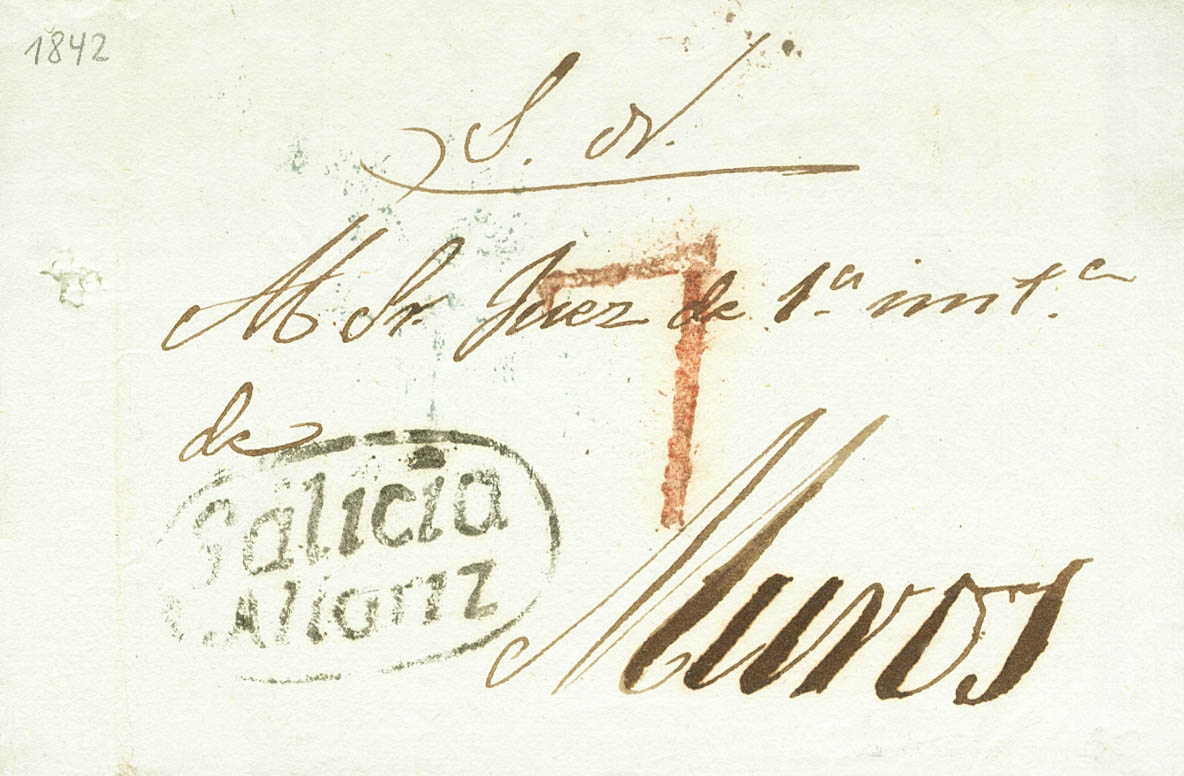 1842
S. N.
Al Sr. Juez de 1.ª inst.ª
7
de
Galicia
Allariz
Muros